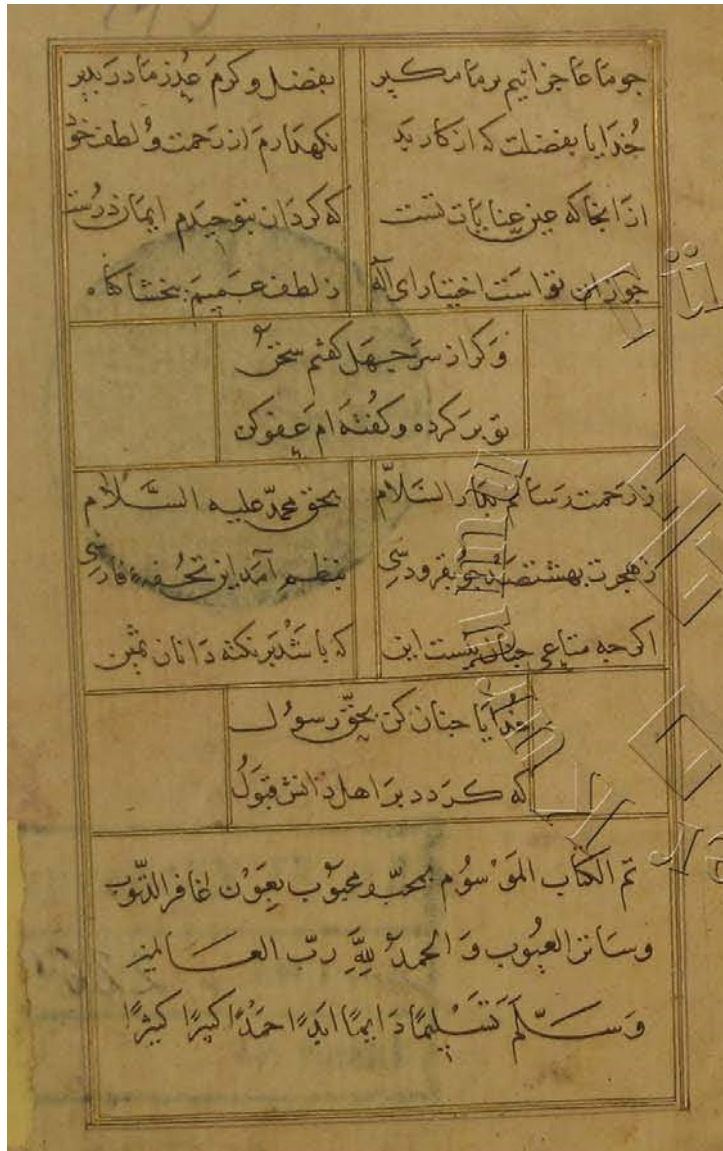 جو ما عاجزانیم بر ما مکیر بفضل وکرم عذر ما درپذیر
خدایا بفضلت که از کار بد نکهدارم از رحمت و لطف خود
از انجا که عین عنایات تست که کردان بتوحیدم ایمان درست
جو زان تو است اختیار ای آله ز لطف عمیمم ببخشا کناه
وکر از سر جهل کفتم سخن
تو بر کرده وکفته ام عفو کن
ز رحمت رسانم بدار السلام بحق محمد علیه السلام
ز هجرت بهشتصد بنظم آمد این تحفه فارسی
اکرچه متاعی جنان نیست این که باشد بر نکته دانان ثمین
خدایا جنان کن بحق رسول
که کردد بر اهل دانش قبول
تم الکتاب الموسوم بمحب و محبوب بعون غافر الذنوب
وساتر العیوب و الحمد لله رب العالمین
وسلم تسلیما دایما ابدا حمدا کبیرا کثیرا